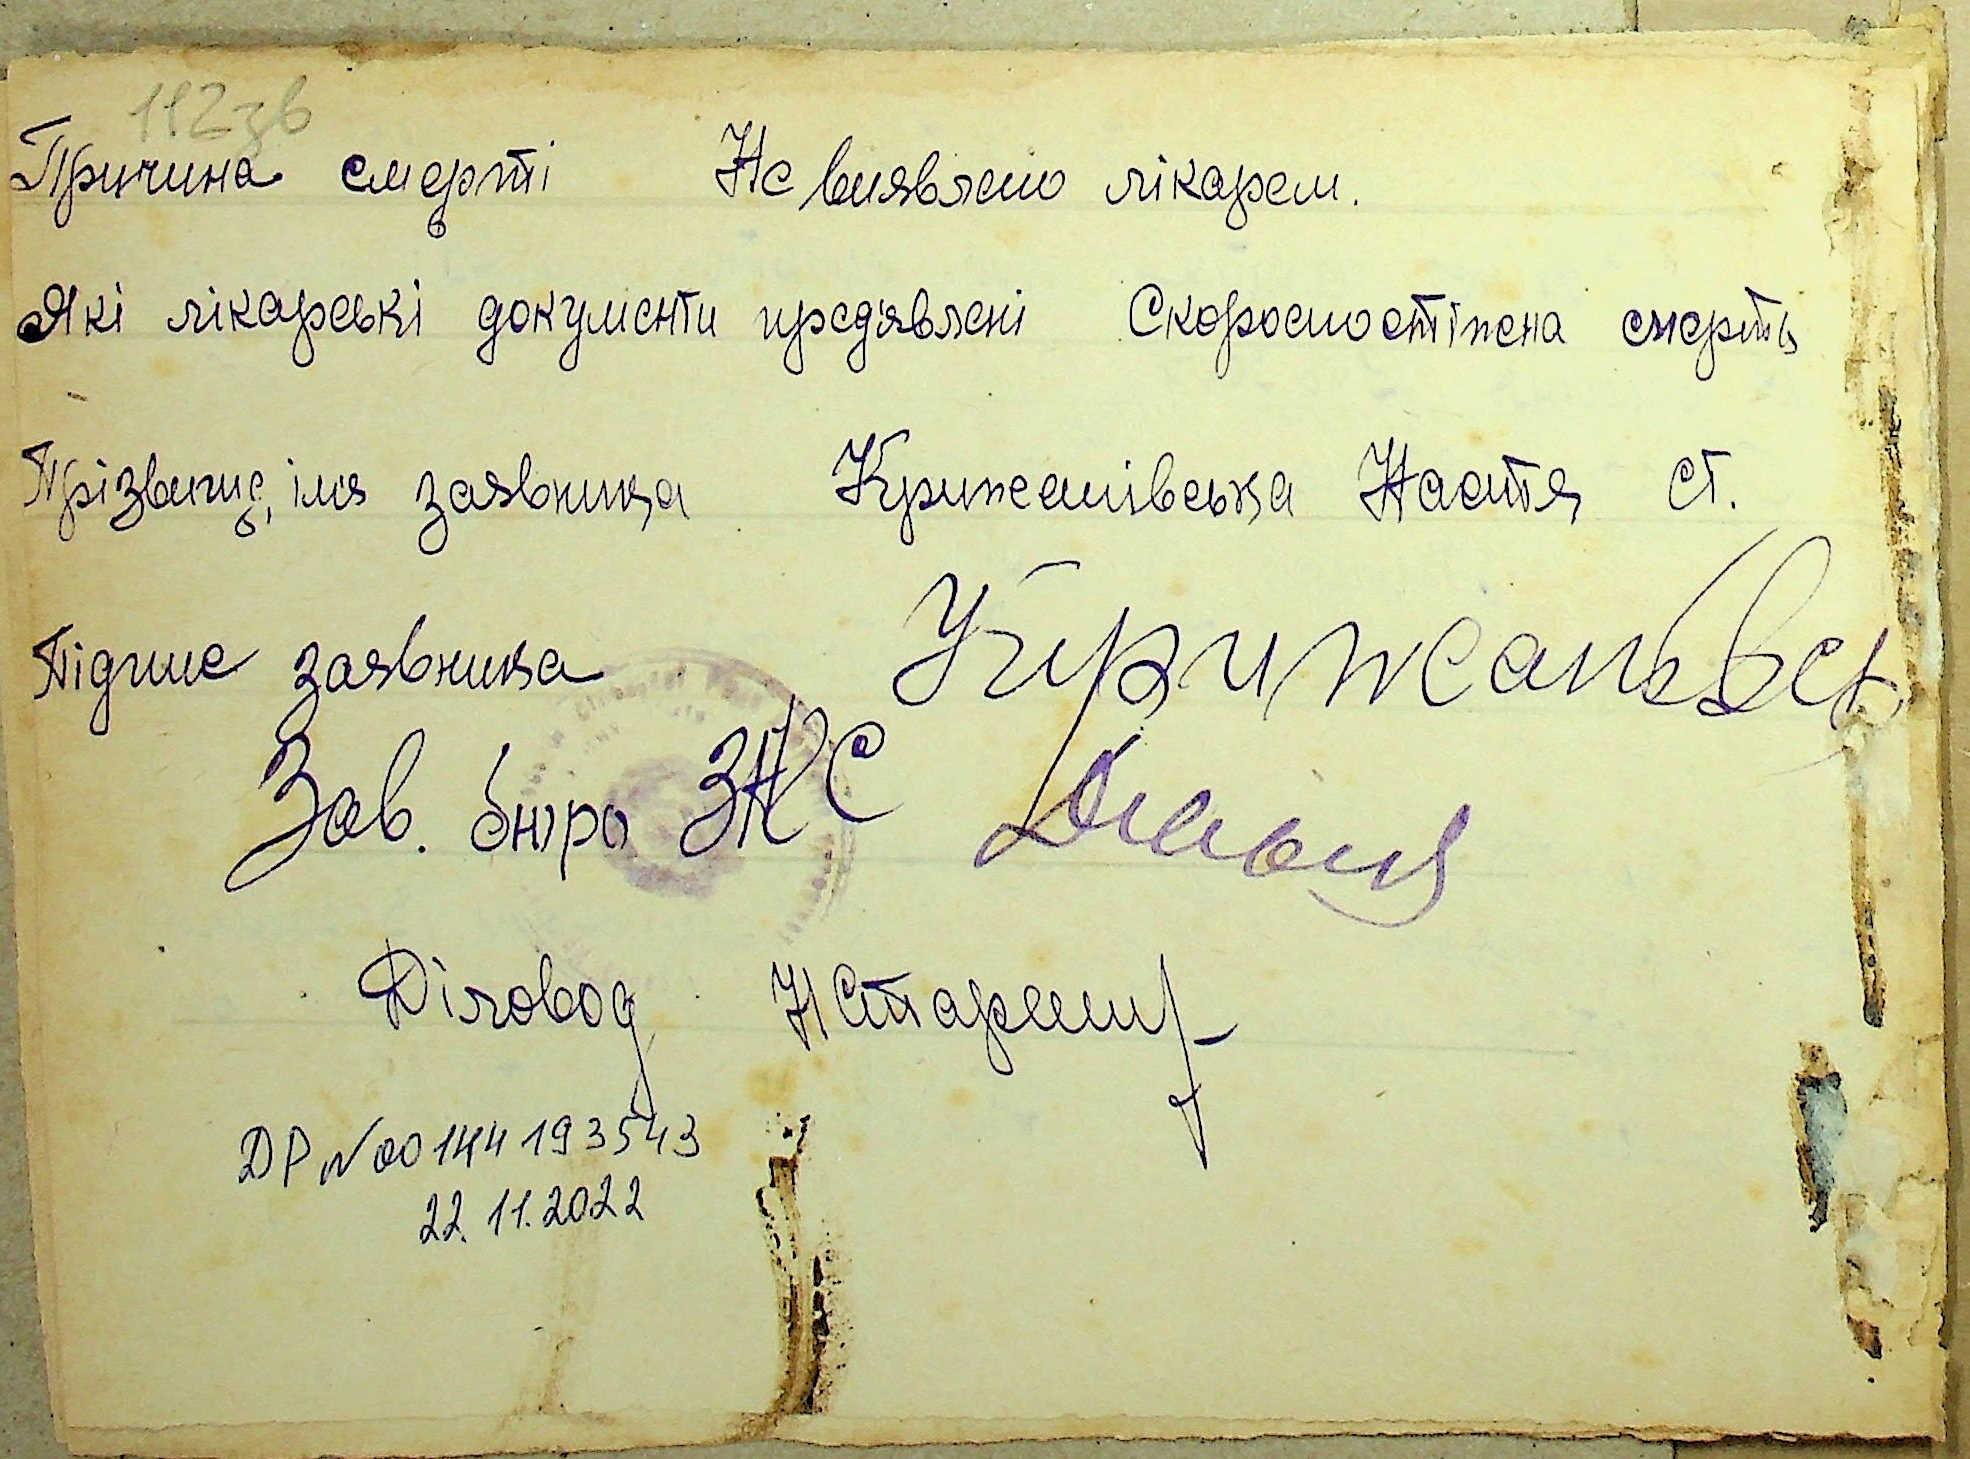 112зв
Причина смерті Не виявлено лікарем.
Які лікарські документи предявлені Скоропостіжна смерть
Прізвище, імя заявника Крижанівська Настя ст.
Підпис заявника Крижановск
Зав. бюро ЗАГС
Діловод
ДР № 00144193543
22.11.2022